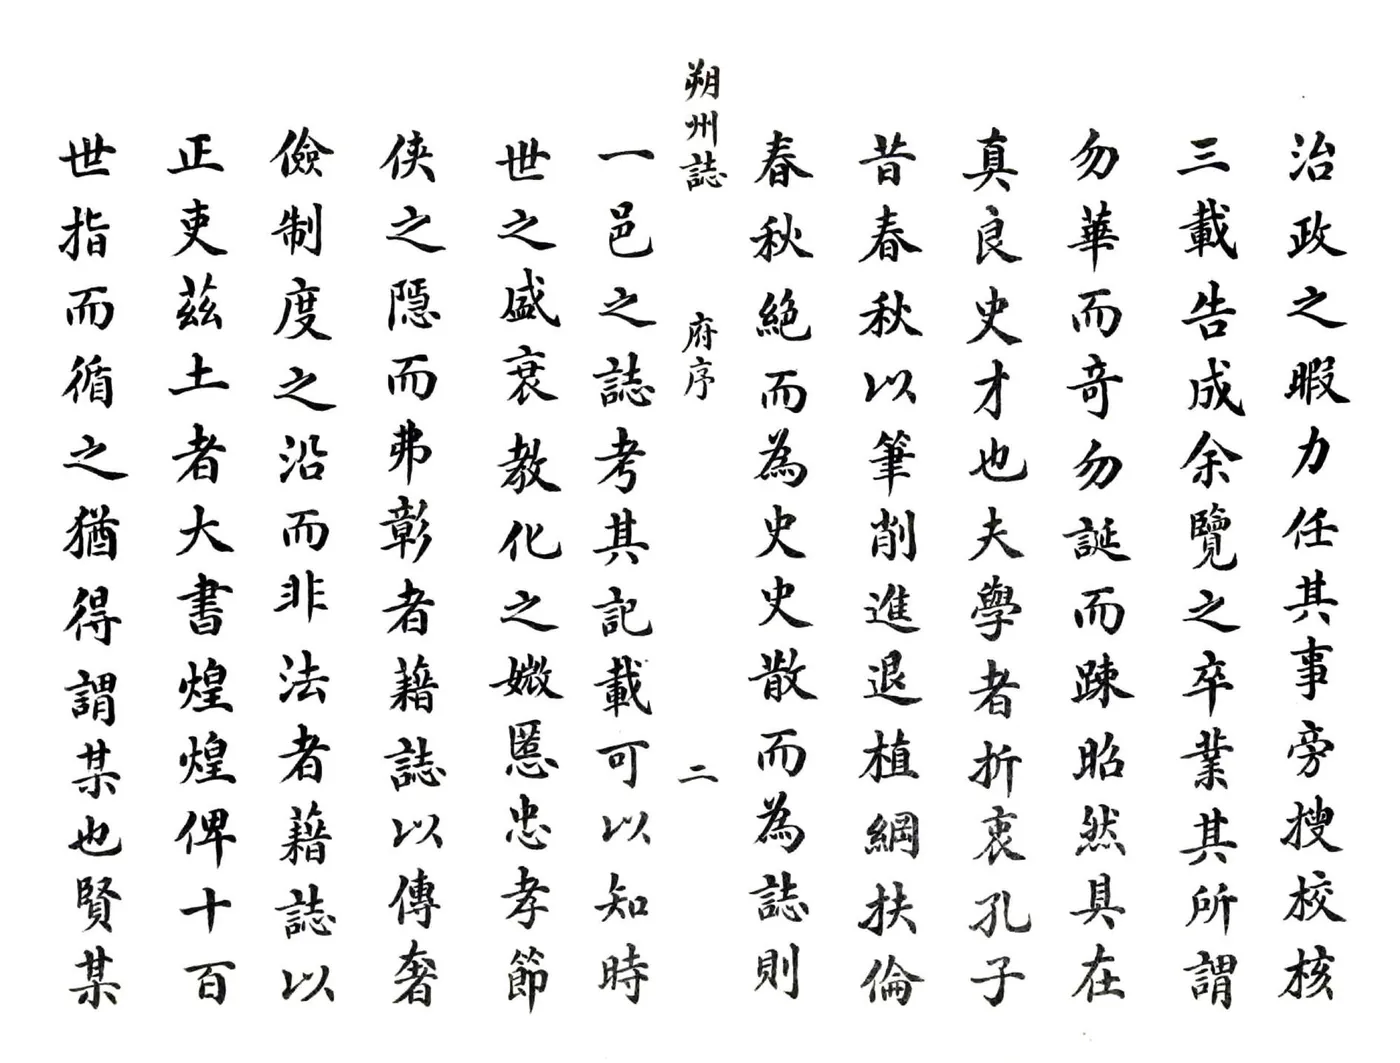 治政之暇力任其事旁搜校核
三載告成余覽之卒業其所謂
勿華而奇勿誕而踈昭然具在
真良史才也夫學者折衷孔子
昔春秋以筆削進退植綱扶倫
春秋絕而為史史散而為誌則
朔州誌 府序 二
一邑之誌考其記載可以知時
世之盛衰教化之媺慝忠孝節
俠之隱而弗彰者藉誌以傳奢
儉制度之沿而非法者藉誌以
正吏茲土者大書煌煌俾十百
世指而循之猶得謂某也賢某